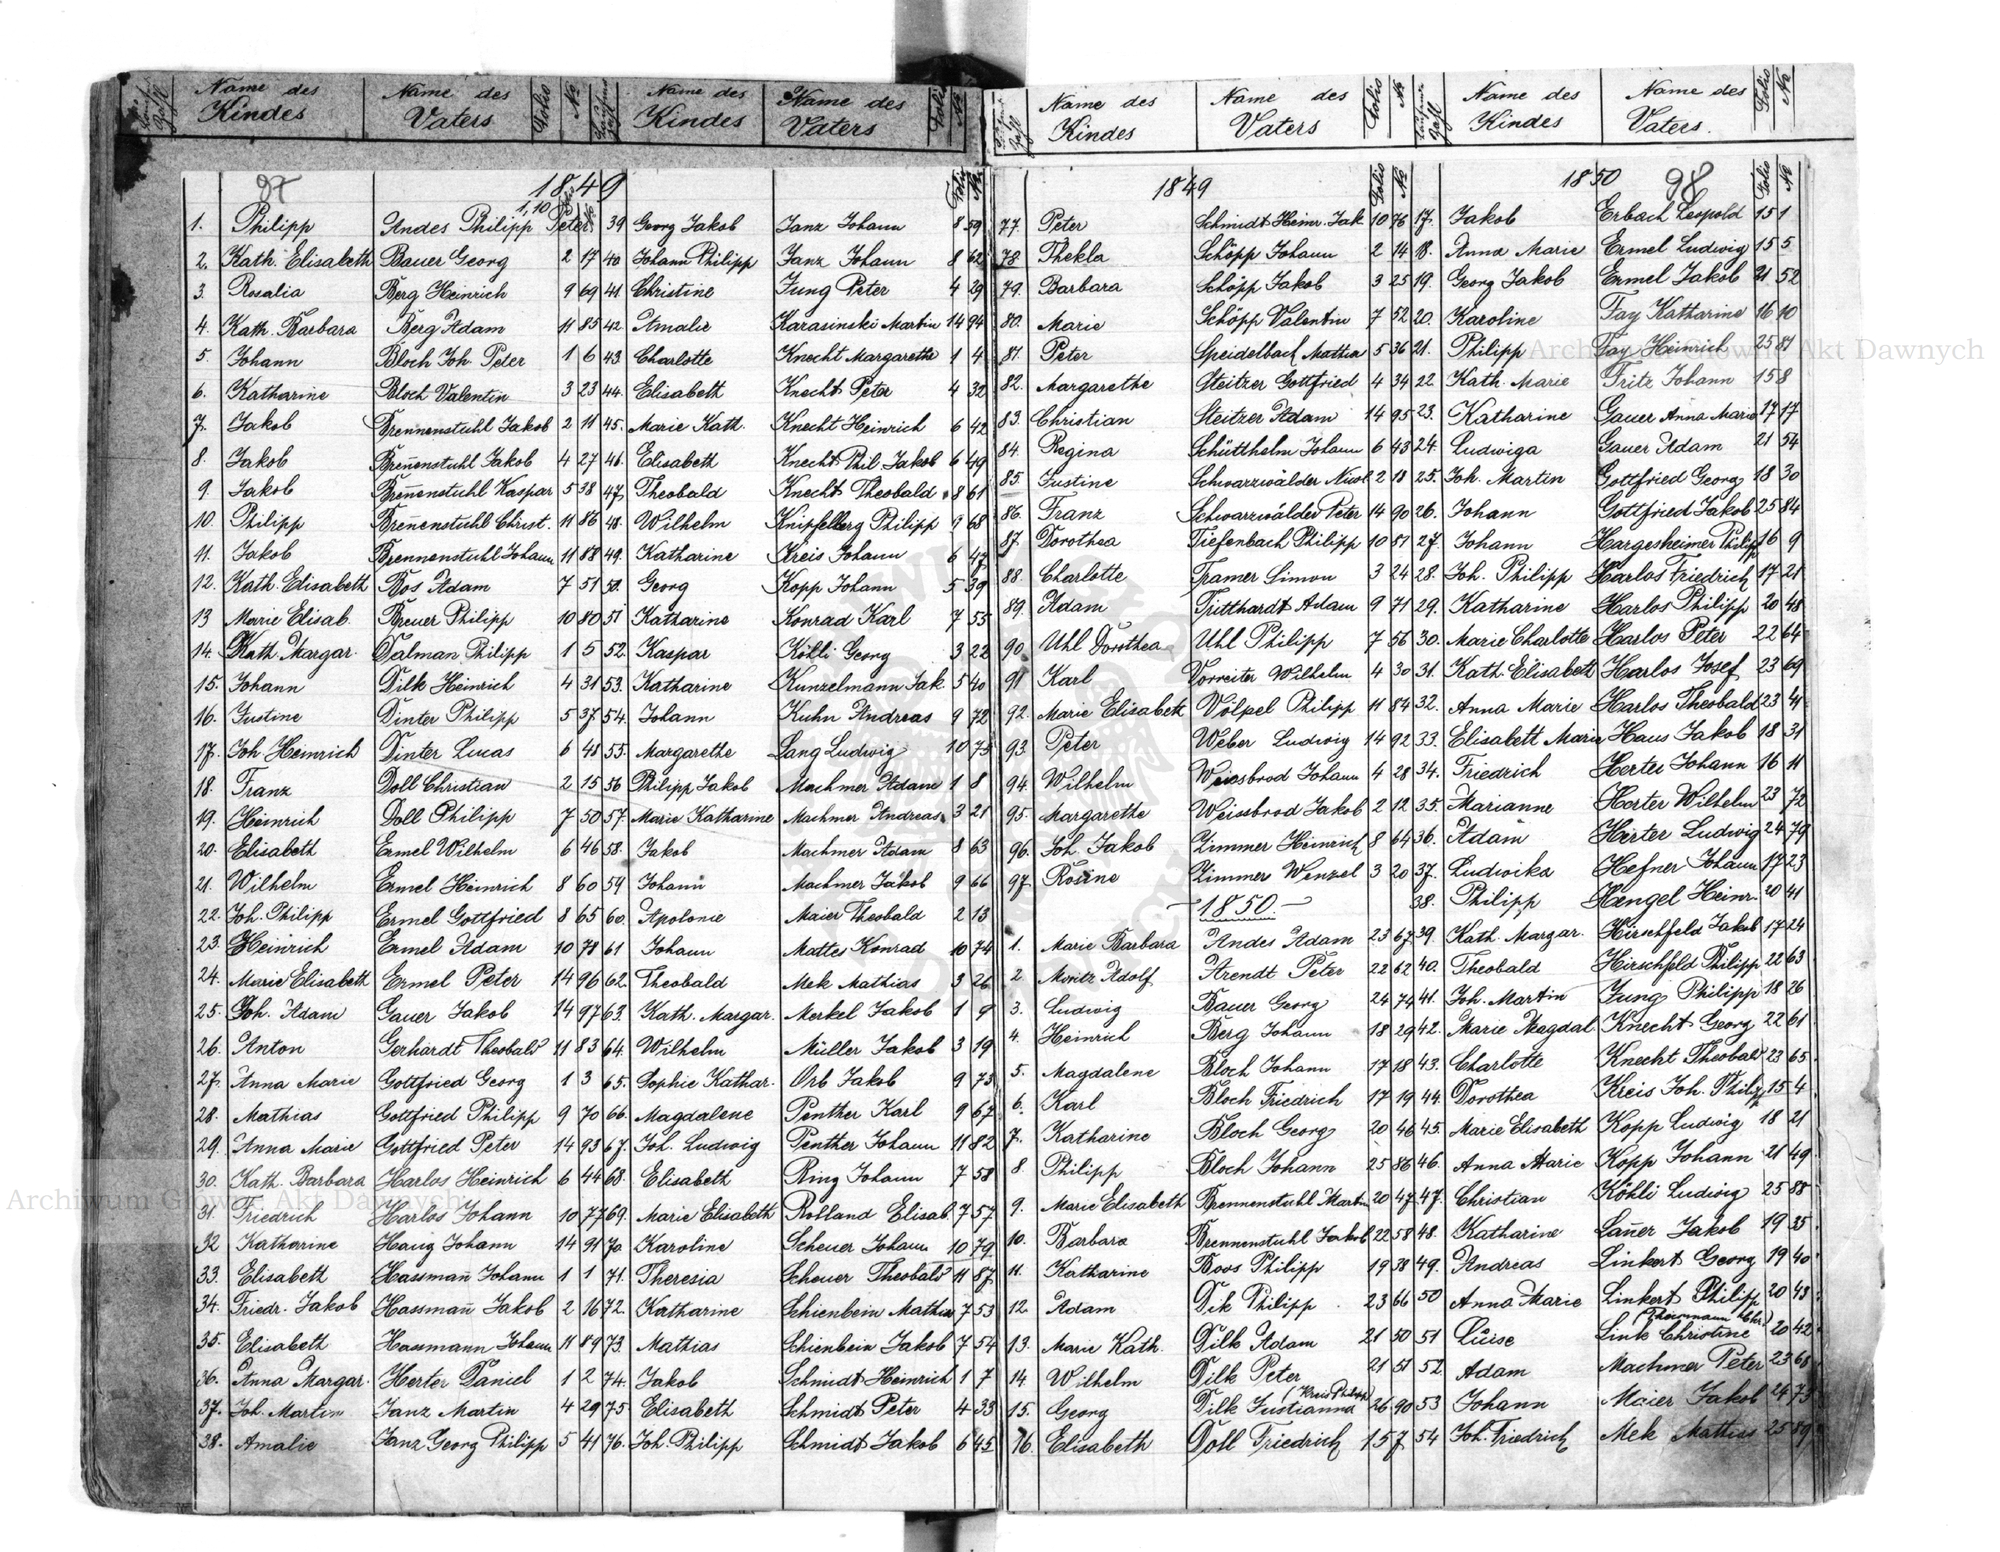 Laufende Zahl Name des Kindes Name des Vaters Folio №
Laufende Zahl Name des Kindes Name des Vaters Folio №
Name des Kindes Name des Vaters Folio №
Laufende Zahl Name des Kindes Name des Vaters. Folio №
97
1849
1. Philipp Andes Philipp Peter 1,10
2. Kath. Elisabeth Bauer Georg 2 17
3. Rosalia Berg Heinrich 9 69
4. Kath. Barbara Berg Adam 11 85
5. Johann Bloch Joh. Peter 1 6
6. Katharine Bloch Valentin 3 23
7. Jakob Brennenstuhl Jakob 2 11
8. Jakob Breñenstuhl Jakob 4 27
9. Jakob Breñenstuhl Kaspar 5 38
10. Philipp Breñenstuhl Christ. 11 86
11. Jakob Brennenstuhl Johann 11 88
12. Kath. Elisabeth Bos Adam 7 51
13 Marie Elisab. Breuer Philipp 10 80
14. Kath. Margar. Dalman Philipp 1 5
15. Johann Dilk Heinrich 4 31
16. Justine Dinter Philipp 5 37
17. Joh. Heinrich Dinter Lucas 6 48
18. Franz Doll Christian 2 15
19. Heinrich Doll Philipp 7 50
20. Elisabeth Ermel Wilhelm 6 46
21. Wilhelm Ermel Heinrich 8 60
22. Joh. Philipp Ermel Gottfried 8 65
23. Heinrich Ermel Adam 10 78
24. Marie Elisabeth Ermel Peter 14 96
25. Joh. Adam Gauer Jakob 14 97
26. Anton Gerhardt Theobald 11 83
27. Anna Marie Gottfried Georg 1 3
28. Mathias Gottfried Philipp 9 70
29. Anna Marie Gottfried Peter 14 93
30. Kath. Barbara Harlos Heinrich 6 44
31. Friedrich Harlos Johann 10 77
32 Katharine Haug Johann 14 91
33. Elisabeth Hassmañ Johann 1 1
34. Friedr. Jakob Hassmañ Jakob 2 16
35. Elisabeth Hassmann Johann 11 89
36. Anna Margar. Herter Daniel 1 2
37. Joh. Martin Janz Martin 4 29
38. Amalie Janz Georg Philipp 5 41
39 Georg Jakob Janz Johann 8 59
40 Johann Philipp Janz Johann 8 62
41 Christine Jung Peter 4 29
42 Amalie Karasinski Martin 14 94
43 Charlotte Knecht Margarethe 1 4
44. Elisabeth Knecht Peter 4 32
45. Marie Kath. Knecht Heinrich 6 42
46. Elisabeth Knecht Phil. Jakob 6 49
47. Theobald Knecht Theobald 8 61
48. Wilhelm Knipfelberg Philipp 9 68
49. Katharine Kreis Johann 6 47
50. Georg Kopp Johann 5 39
51 Katharine Konrad Karl 7 55
52. Kaspar Köhli Georg 3 22
53. Katharine Kunzelmann Jak. 5 40
54. Johann Kuhn Andreas 9 72
55. Margarethe Lang Ludwig 10 75
56 Philipp Jakob Machmer Adam 1 8
57. Marie Katharine Machmer Andreas 3 21
58. Jakob Machmer Adam 8 63
59 Johann Machmer Jakob 9 66
60. Apolonie Maier Theobald 2 13
61 Johann Mattes Konrad 10 74
62. Theobald Mek Mathias 3 26
63. Kath. Margar. Merkel Jakob 1 9
64. Wilhelm Müller Jakob 3 19
65. Sophie Kathar. Orb Jakob 9 73
66. Magdalene Penther Karl 9 67
67. Joh. Ludwig Penther Johann 11 82
68. Elisabeth Ring Johann 7 58
69. Marie Elisabeth Rolland Elisab. 7 57
70 Karoline Scheuer Johann 10 79
71. Theresia Scheuer Theobald 11 87
72. Katharine Schienbein Mathias 7 53
73. Mathias Schienbein Jakob 7 54
74. Jakob Schmidt Heinrich 1 7
75 Elisabeth Schmidt Peter 4 33
76. Joh. Philipp Schmidt Jakob 6 45
1849
77. Peter Schmidt Heinr. Jak. 10 76
78. Thekla Schöpp Johann 2 14
79. Barbara Schöpp Jakob 3 25
80. Marie Schöpp Valentin 7 52
81. Peter Speidelbach Mathias 5 36
82. Margarethe Steitzer Gottfried 4 34
83. Christian Steitzer Adam 14 95
84. Regina Schüttheln Johann 6 43
85. Justine Schwarzwälder Nicol 2 18
86. Franz Schwarzwälder Peter 14 90
87. Dorothea Tiefenbach Philipp 10 81
88. Charlotte Tramer Simon 3 24
89. Adam Tritthardt Adam 9 71
90. Uhl Dorothea Uhl Philipp 7 56
91 Karl Vorreiter Wilhelm 4 30
92. Marie Elisabeth Völpel Philipp 11 84
93. Peter Weber Ludwig 14 92
94. Wilhelm Weissbrod Johann 4 28
95. Margarethe Weissbrod Jakob 2 12
96. Joh. Jakob Zimmer Heinrich 8 64
97. Rosine Zimmer Wenzel 3 20
- 1850 -
1. Marie Barbara Andes Adam 23 67
2 Moritz Adolf Arendt Peter 22 62
3. Ludwig Bauer Georg 24 74
4. Heinrich Berg Johann 18 29
5. Magdalene Bloch Johann 17 18
6. Karl Bloch Friedrich 17 19
7. Katharine Bloch Georg 20 46
8. Philipp Bloch Johann 25 86
9. Marie Elisabeth Brennenstuhl Martin 20 47
10. Barbara Brennenstuhl Jakob 22 58
11. Katharine Boos Philipp 19 38
12. Adam Dik Philipp 23 66
13. Marie Kath. Dilk Adam 21 50
14. Wilhelm Dilk Peter 21 51
15. Georg Dilk Justianna (Kreis Philipp) 26 90
16. Elisabeth Doll Friedrich 15 7
1850 98
17. Jakob Erbach Leopold 15 1
18. Anna Marie Ermel Ludwig 15 5
19. Georg Jakob Ermel Jakob 21 52
20. Karoline Fay Katharine 16 10
21. Philipp Fay Heinrich 25 81
22. Kath. Marie Fritz Johann 15 8
23. Katharine Gauer Anna Maria 17 17
24. Ludwiga Gauer Adam 21 54
25. Joh. Martin Gottfried Georg 18 30
26. Johann Gottfried Jakob 25 84
27. Johann Hargesheimer Philipp 16 9
28. Joh. Philipp Harlos Friedrich 17 21
29. Katharine Harlos Philipp 20 48
30. Marie Charlotte Harlos Peter 22 64
31. Kath. Elisabeth Harlos Josef 23 69
32. Anna Marie Harlos Theobald 23 41
33. Elisabeth Marie Haus Jakob 18 31
34. Friedrich Herter Johann 16 11
35. Marianne Herter Wilhelm 23 72
36. Adam Herter Ludwig 24 79
37. Ludwika Hefner Johann 17 23
38. Philipp Hengel Heinr. 20 41
39. Kath. Margar. Hirschfeld Jakob 17 24
40. Theobald Hirschfeld Philipp 22 63
41. Joh. Martin Jung Philipp 18 26
42. Marie Magdal Knecht Georg 22 61
43. Charlotte Knecht Theobald 23 65
44. Dorothea Kreis Joh. Philip 15 4
45. Marie Elisabeth Kopp Ludwig 18 21
46. Anna Marie Kopp Johann 21 49
47. Christian Köhli Ludwig 25 88
48. Katharine Lañer Jakob 19 35
49. Andreas Linkert Georg 19 40
50 Anna Marie Linkert Philipp 20 43
51 Luise Link Christine 20 42
52. Adam Machmer Peter 23 68
53 Johann Maier Jakob 24 73
54 Joh. Friedrich Mek Mathias 25 89
Archiwum Główne Akt Dawnych
Archiwum Główne Akt Dawnych